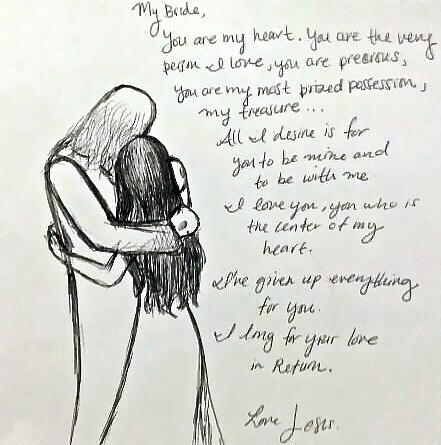 My Bride,
You are my heart. You are the very
person I love, you are precious,
you are my most prized possession,
my treasure...
All I desire is for
you to be mine and
to be with me.
I love you, you who is
the center of my
heart.
I've given up everything
for you.
I long for your love
in Return.
Love Jesus.